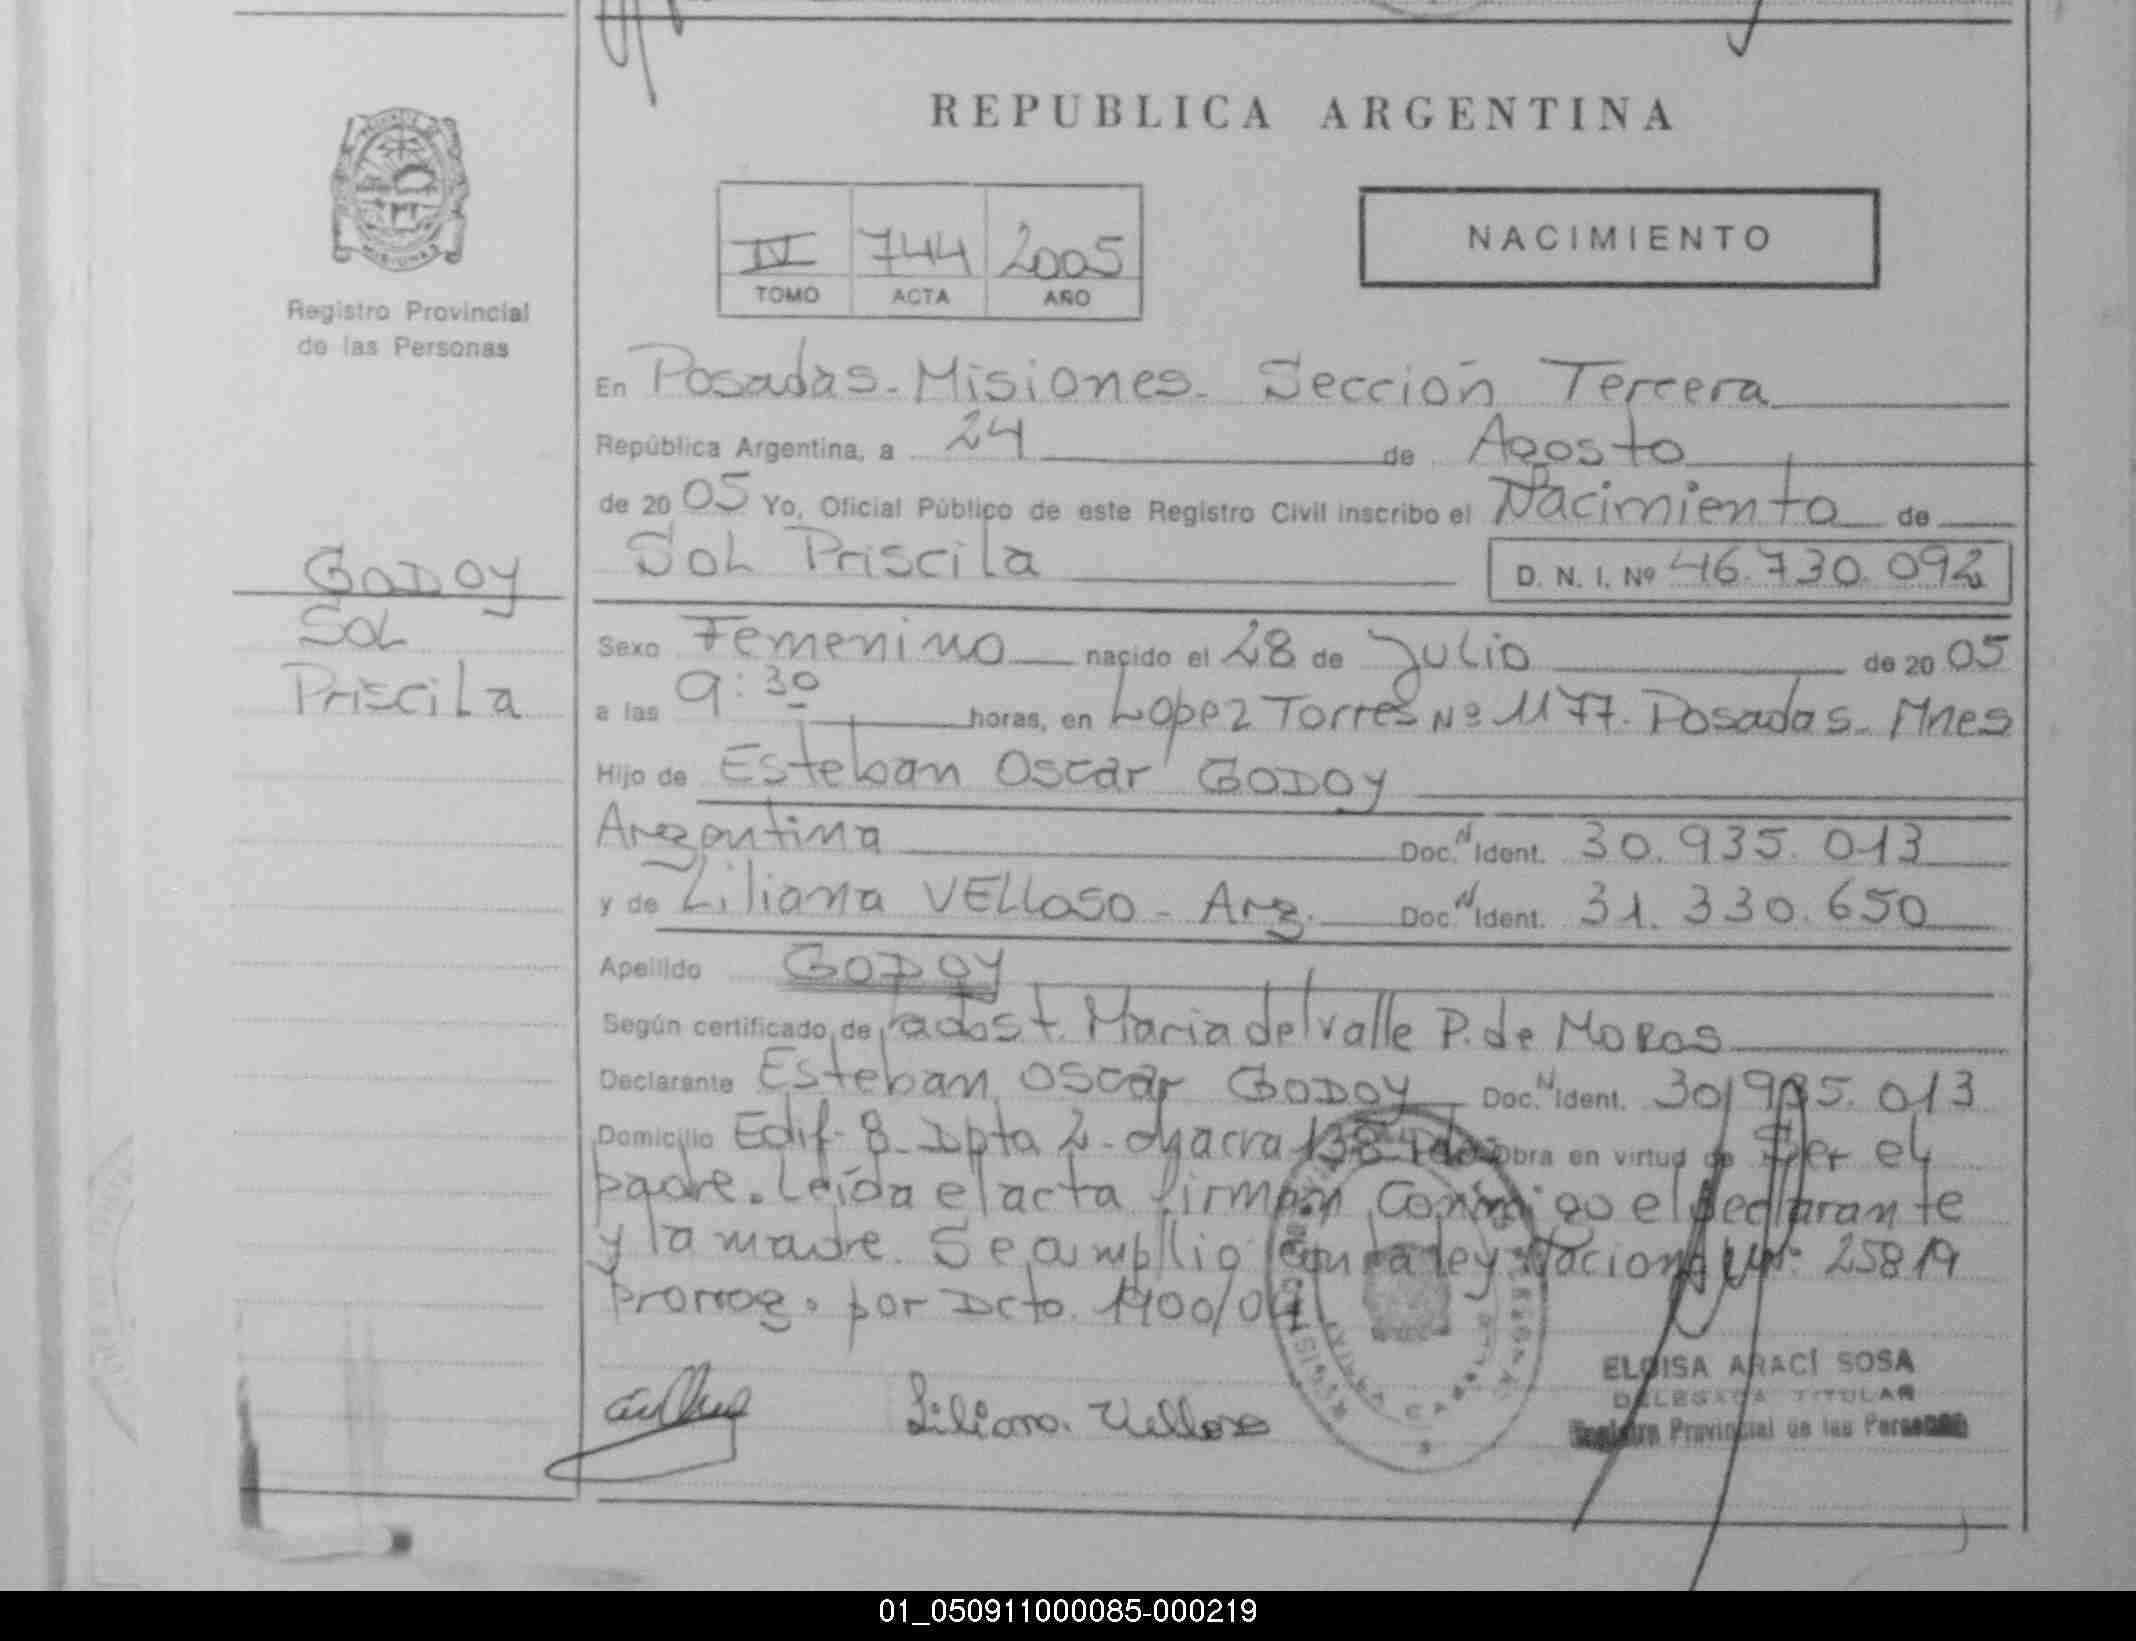 REPUBLICA ARGENTINA
IV 744 2005
TOMO ACTA AÑO
NACIMIENTO
Registro Provincial
de las Personas
GODOY
SOL
PrisciLa
En Posadas-Misiones- Sección Tercera
República Argentina, a 24 de Agosto
de 20 05 Yo, Oficial Público de este Registro Civil inscribo el Nacimiento de
SOL Priscila D. N. I. Nº 46.730.092
Sexo Femenino nacido el 28 de Julio de 20 05
a las 9:30 horas, en Lopez Torres Nº 1177. Posadas- Mnes
Hijo de Esteban Oscar GODOY
Argentina Doc. N Ident. 30.935.013
y de Liliana VELLoso - Arg. Doc. N Ident. 31.330.650
Apellido GODOY
Según certificado de obst. Maria del valle P. de Moras
Declarante Esteban Oscar GODOY Doc. N Ident. 30.935.013
Domicilio Edif- 8- Dpto 2- chacra 138 Obra en virtud de Ser el
padre. Leída el acta firman conmigo el declarante
y la madre. Se amplio con la ley Nacional Nº: 25819
prorrog. por Dcto. 1900/04
Liliana. Velloso
ELOISA ARACÍ SOSA
DELEGADA TITULAR
Registro Provincial de las Personas
01_050911000085-000219